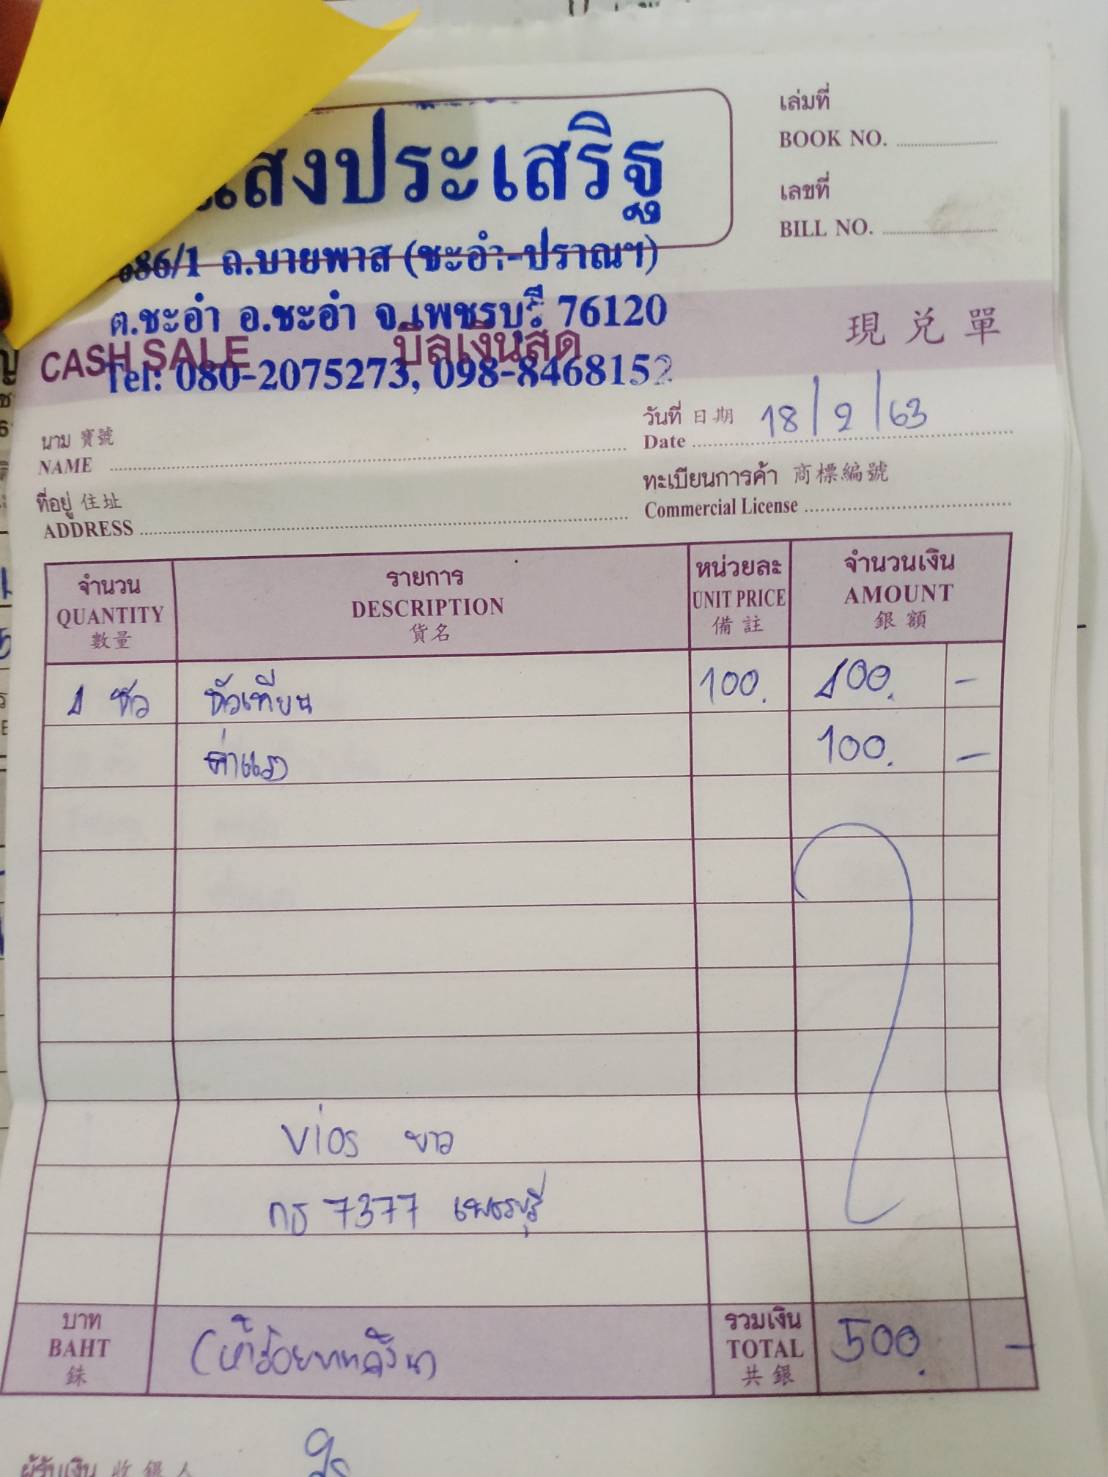 แสงประเสริฐ
686/1 ถ.บายพาส (ชะอำ-ปราณฯ)
ต.ชะอำ อ.ชะอำ จ.เพชรบุรี 76120
Tel: 080-2075273, 098-8468152
เล่มที่
BOOK NO.
เลขที่
BILL NO.
CASH SALE บิลเงินสด 現兌單
นาม 寶號
NAME
วันที่ 日期 18/2/63
Date
ที่อยู่ 住址
ADDRESS
ทะเบียนการค้า 商標編號
Commercial License
จำนวน รายการ หน่วยละ จำนวนเงิน
QUANTITY DESCRIPTION UNIT PRICE AMOUNT
數量 貨名 備註 銀額
หัวเทียน 100. 400. -
ค่าแรง 100. -
Vios ขาว
กธ 7377 เพชรบุรี
บาท รวมเงิน
BAHT (ห้าร้อยบาทถ้วน) TOTAL 500. -
銖 共銀
ผู้รับเงิน 收銀人